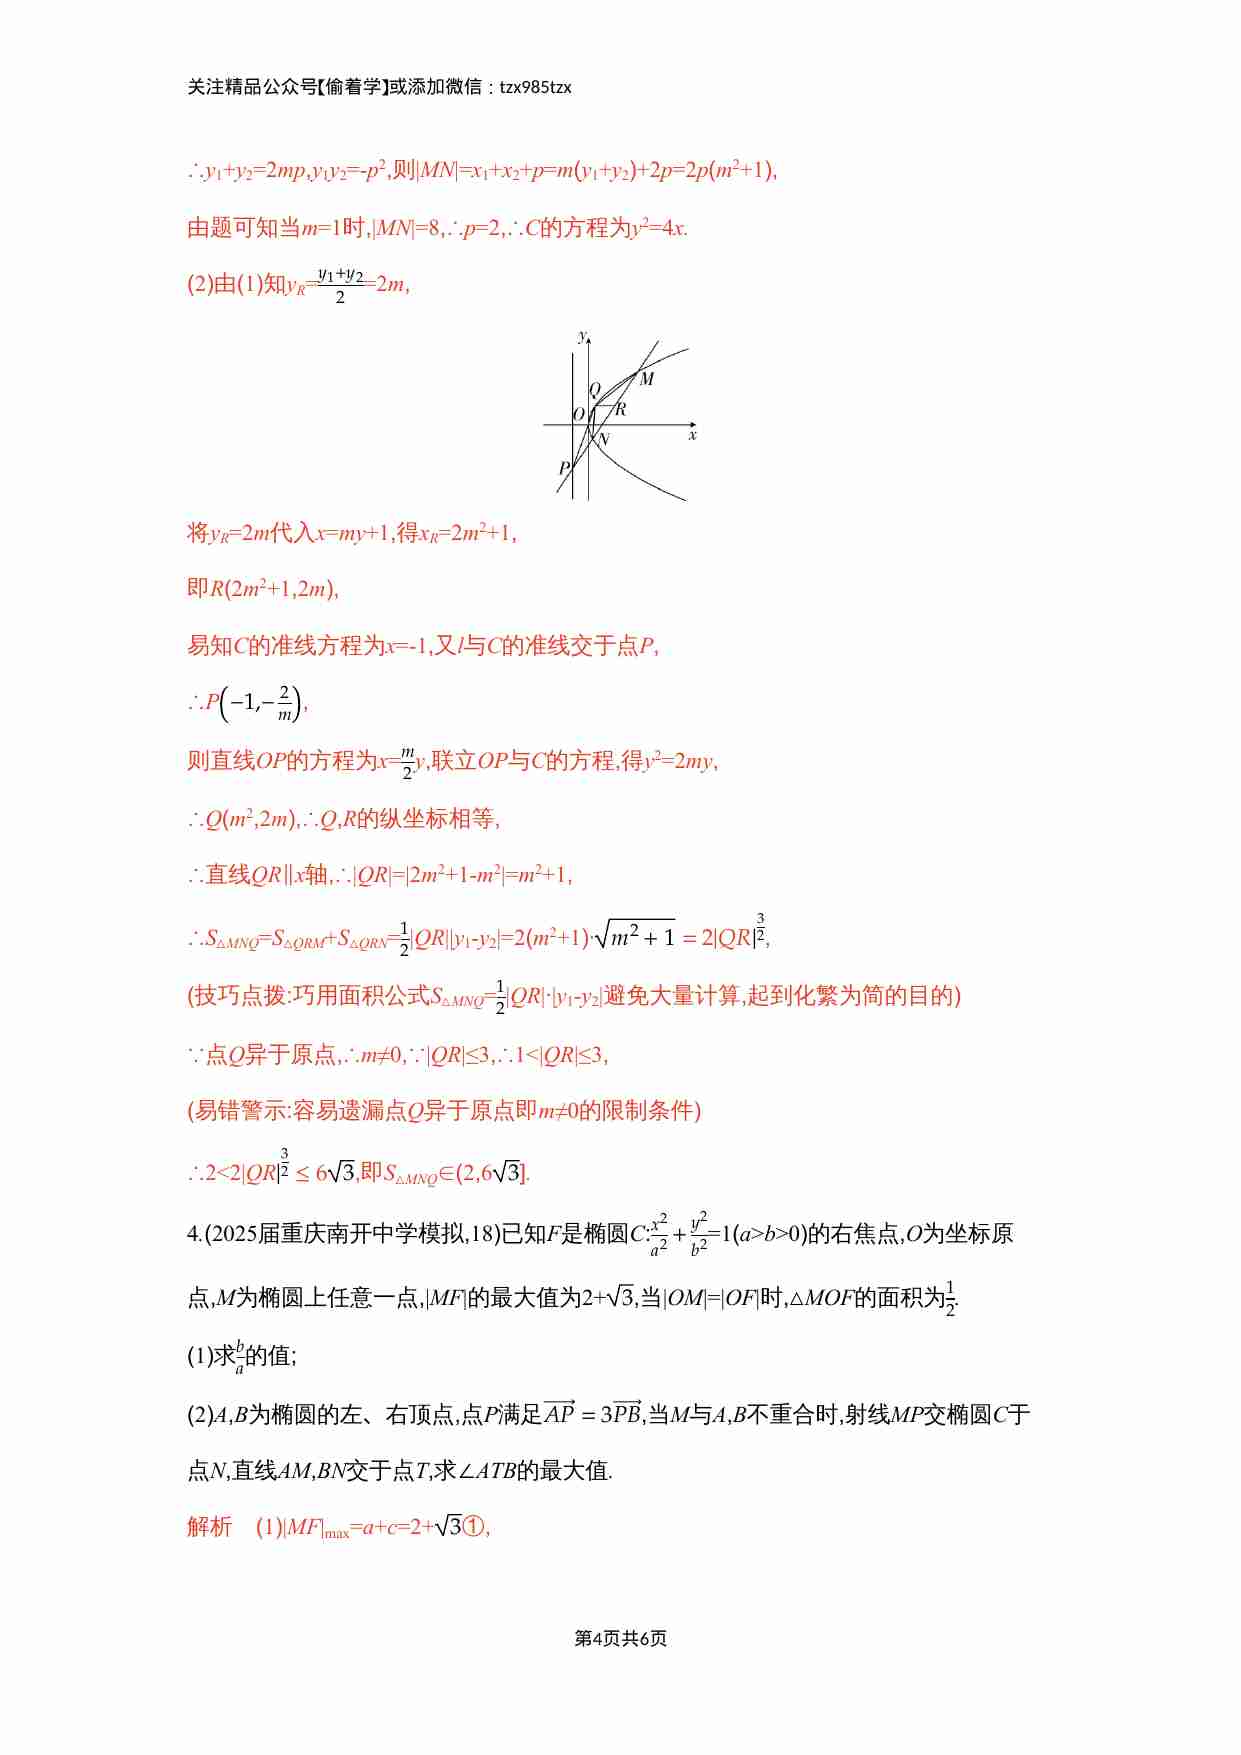 关注精品公众号【偷着学】或添加微信：tzx985tzx
∴y₁+y₂=2mp,y₁y₂=-p²,则|MN|=x₁+x₂+p=m(y₁+y₂)+2p=2p(m²+1),
由题可知当m=1时,|MN|=8,∴p=2,∴C的方程为y²=4x.
(2)由(1)知y_R=\frac{y₁+y₂}{2}=2m,
y
M
Q
O
R
x
N
P
将y_R=2m代入x=my+1,得x_R=2m²+1,
即R(2m²+1,2m),
易知C的准线方程为x=-1,又l与C的准线交于点P,
∴P(−1,−\frac{2}{m}),
则直线OP的方程为x=\frac{m}{2}y,联立OP与C的方程,得y²=2my,
∴Q(m²,2m),∴Q,R的纵坐标相等,
∴直线QR∥x轴,∴|QR|=|2m²+1-m²|=m²+1,
∴S_{△MNQ}=S_{△QRM}+S_{△QRN}=\frac{1}{2}|QR||y₁-y₂|=2(m²+1)·\sqrt{m²+1}=2|QR|^{\frac{3}{2}},
(技巧点拨:巧用面积公式S_{△MNQ}=\frac{1}{2}|QR|·|y₁-y₂|避免大量计算,起到化繁为简的目的)
∵点Q异于原点,∴m≠0,∵|QR|≤3,∴1<|QR|≤3,
(易错警示:容易遗漏点Q异于原点即m≠0的限制条件)
∴2<2|QR|^{\frac{3}{2}}≤6\sqrt{3},即S_{△MNQ}∈(2,6\sqrt{3}].
4.(2025届重庆南开中学模拟,18)已知F是椭圆C:\frac{x²}{a²}+\frac{y²}{b²}=1(a>b>0)的右焦点,O为坐标原
点,M为椭圆上任意一点,|MF|的最大值为2+\sqrt{3},当|OM|=|OF|时,△MOF的面积为\frac{1}{2}.
(1)求\frac{b}{a}的值;
(2)A,B为椭圆的左、右顶点,点P满足\overrightarrow{AP}=3\overrightarrow{PB},当M与A,B不重合时,射线MP交椭圆C于
点N,直线AM,BN交于点T,求∠ATB的最大值.
解析　(1)|MF|_{max}=a+c=2+\sqrt{3}①,
第4页共6页